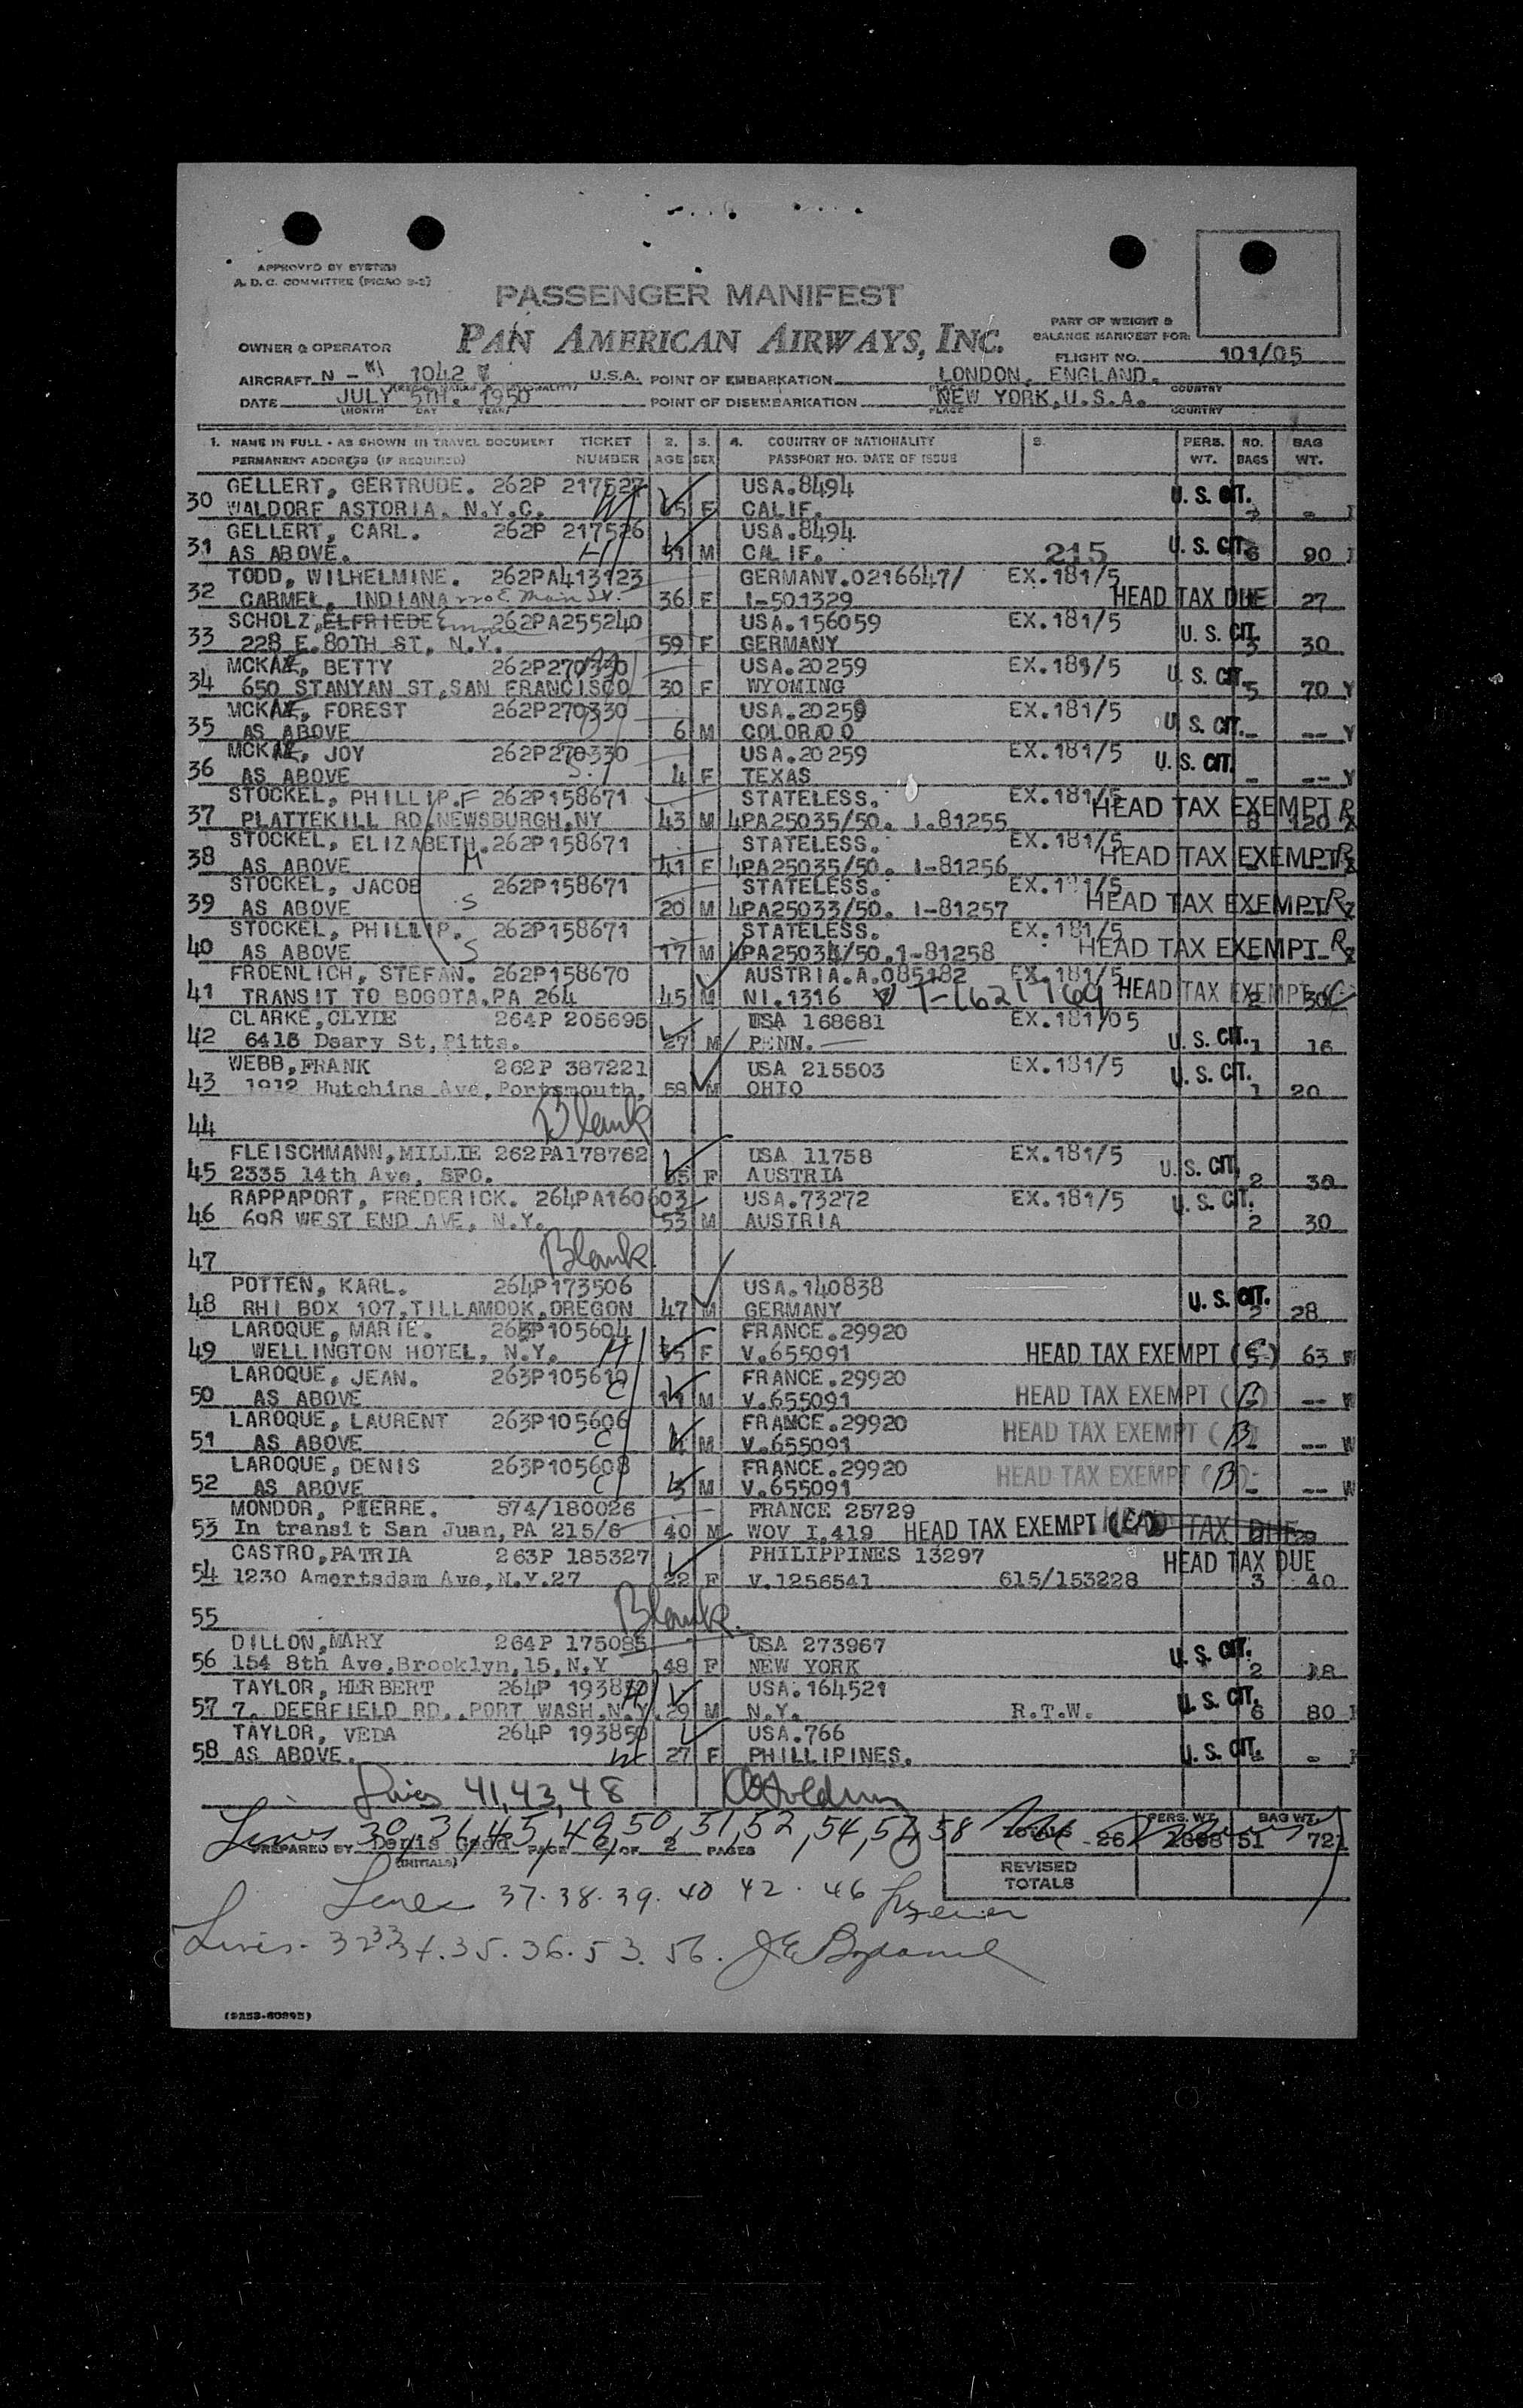 APPROVED BY SYSTEM
A. D. C. COMMITTEE (PICAO 9-2)
PASSENGER MANIFEST
PAN AMERICAN AIRWAYS, INC.
PART OF WEIGHT &
BALANCE MANIFEST FOR:
OWNER & OPERATOR
FLIGHT NO. 101/05
AIRCRAFT N - 1042 V U.S.A. POINT OF EMBARKATION LONDON, ENGLAND.
PLACE COUNTRY
DATE JULY 5TH. 1950 POINT OF DISEMBARKATION NEW YORK, U.S.A.
(MONTH DAY YEAR) PLACE COUNTRY
1. NAME IN FULL - AS SHOWN IN TRAVEL DOCUMENT TICKET 2. 3. 4. COUNTRY OF NATIONALITY 5. PERS. NO. BAG
PERMANENT ADDRESS (IF REQUIRED) NUMBER AGE SEX PASSPORT NO. DATE OF ISSUE WT. BAGS WT.
GELLERT, GERTRUDE. 262P 217527 USA.8494 U. S. CIT.
30 WALDORF ASTORIA. N.Y.C. W F CALIF. -
GELLERT, CARL. 262P 217526 USA.8494
31 AS ABOVE. H 51 M CALIF. 215 U. S. CIT. 6 90
TODD, WILHELMINE. 262PA413123 GERMANY.0216647/ EX.181/5
32 CARMEL, INDIANA 220 E Main St. 36 F I-501329 HEAD TAX DUE 27
SCHOLZ, ELFRIEDE Emma 262PA255240 USA.156059 EX.181/5
33 228 E.80TH ST, N.Y. 59 F GERMANY U. S. CIT. 3 30
MCKAE, BETTY 262P270330 USA.20259 EX.181/5
34 650 STANYAN ST, SAN FRANCISCO 30 F WYOMING U. S. CIT. 5 70 Y
MCKAE, FOREST 262P270330 USA.20259 EX.181/5
35 AS ABOVE 6 M COLORADO U. S. CIT. - -- Y
MCKAE, JOY 262P270330 USA.20259 EX.181/5
36 AS ABOVE S. 4 F TEXAS U. S. CIT. - -- Y
STOCKEL, PHILLIP.F 262P158671 STATELESS. EX.181/5
37 PLATTEKILL RD, NEWSBURGH, NY 43 M 4PA25035/50. I.81255 HEAD TAX EXEMPT 8 120
STOCKEL, ELIZABETH. 262P158671 STATELESS. EX.181/5
38 AS ABOVE 41 F 4PA25035/50. I-81256 HEAD TAX EXEMPT
STOCKEL, JACOB 262P158671 STATELESS. EX.181/5
39 AS ABOVE S 20 M 4PA25033/50. I-81257 HEAD TAX EXEMPT
STOCKEL, PHILLIP. 262P158671 STATELESS. EX.181/5
40 AS ABOVE S 17 M 4PA25034/50.I-81258 HEAD TAX EXEMPT
FROENLICH, STEFAN. 262P158670 AUSTRIA.A.085182 EX.181/5
41 TRANSIT TO BOGOTA, PA 264 45 M NI.1316 V T-1621769 HEAD TAX EXEMPT 2 30
CLARKE, CLYDE 264P 205695 USA 168681 EX.181/05
42 6416 Deary St, Pitts. 27 M PENN. U. S. CIT. 1 16
WEBB, FRANK 262P 387221 USA 215503 EX.181/5
43 1912 Hutchins Ave, Portsmouth, 58 M OHIO U. S. CIT. 1 20
44 Blank
FLEISCHMANN, MILLIE 262PA178762 USA 11758 EX.181/5
45 2335 14th Ave, SFO. 55 F AUSTRIA U. S. CIT. 2 30
RAPPAPORT, FREDERICK. 264PA160603 USA.73272 EX.181/5
46 698 WEST END AVE, N.Y. 53 M AUSTRIA U. S. CIT. 2 30
47 Blank
POTTEN, KARL. 264P173506 USA.140838
48 RHI BOX 107, TILLAMOOK, OREGON 47 M GERMANY U. S. CIT. 2 28
LAROQUE, MARIE. 263P105604 FRANCE.29920
49 WELLINGTON HOTEL, N.Y. M F V.655091 HEAD TAX EXEMPT 63 W
LAROQUE, JEAN. 263P105610 FRANCE.29920
50 AS ABOVE C 11 M V.655091 HEAD TAX EXEMPT (B) -- W
LAROQUE, LAURENT 263P105606 FRANCE.29920
51 AS ABOVE C M V.655091 HEAD TAX EXEMPT (B) -- W
LAROQUE, DENIS 263P105608 FRANCE.29920
52 AS ABOVE C M V.655091 HEAD TAX EXEMPT (B) -- W
MONDOR, PIERRE. 574/180026 FRANCE 25729
53 In transit San Juan, PA 215/6 40 M WOV I.419 HEAD TAX EXEMPT HEAD TAX DUE
CASTRO, PATRIA 263P 185327 PHILIPPINES 13297 HEAD TAX DUE
54 1230 Amertsdam Ave, N.Y.27 22 F V.1256541 615/153228 3 40
55 Blank.
DILLON, MARY 264P 175085 USA 273967
56 154 8th Ave, Brooklyn, 15, N.Y 48 F NEW YORK U. S. CIT. 2 18
TAYLOR, HERBERT 264P 193850 USA.164521
57 7. DEERFIELD RD. .PORT WASH.N.Y. 29 M N.Y. R.T.W. U. S. CIT. 6 80
TAYLOR, VEDA 264P 193850 USA.766
58 AS ABOVE. W 27 F PHILLIPINES. U. S. CIT. -
Lines 41, 43, 48
Lines 30, 31, 45, 49, 50, 51, 52, 54, 57, 58
PERS. WT. BAG WT.
PREPARED BY Denis PAGE 2 OF 2 PAGES TOTALS 26 51 721
(INITIALS)
REVISED
TOTALS
Lines 37. 38. 39. 40 42. 46
Lines. 32 33 34. 35. 36. 53. 56.